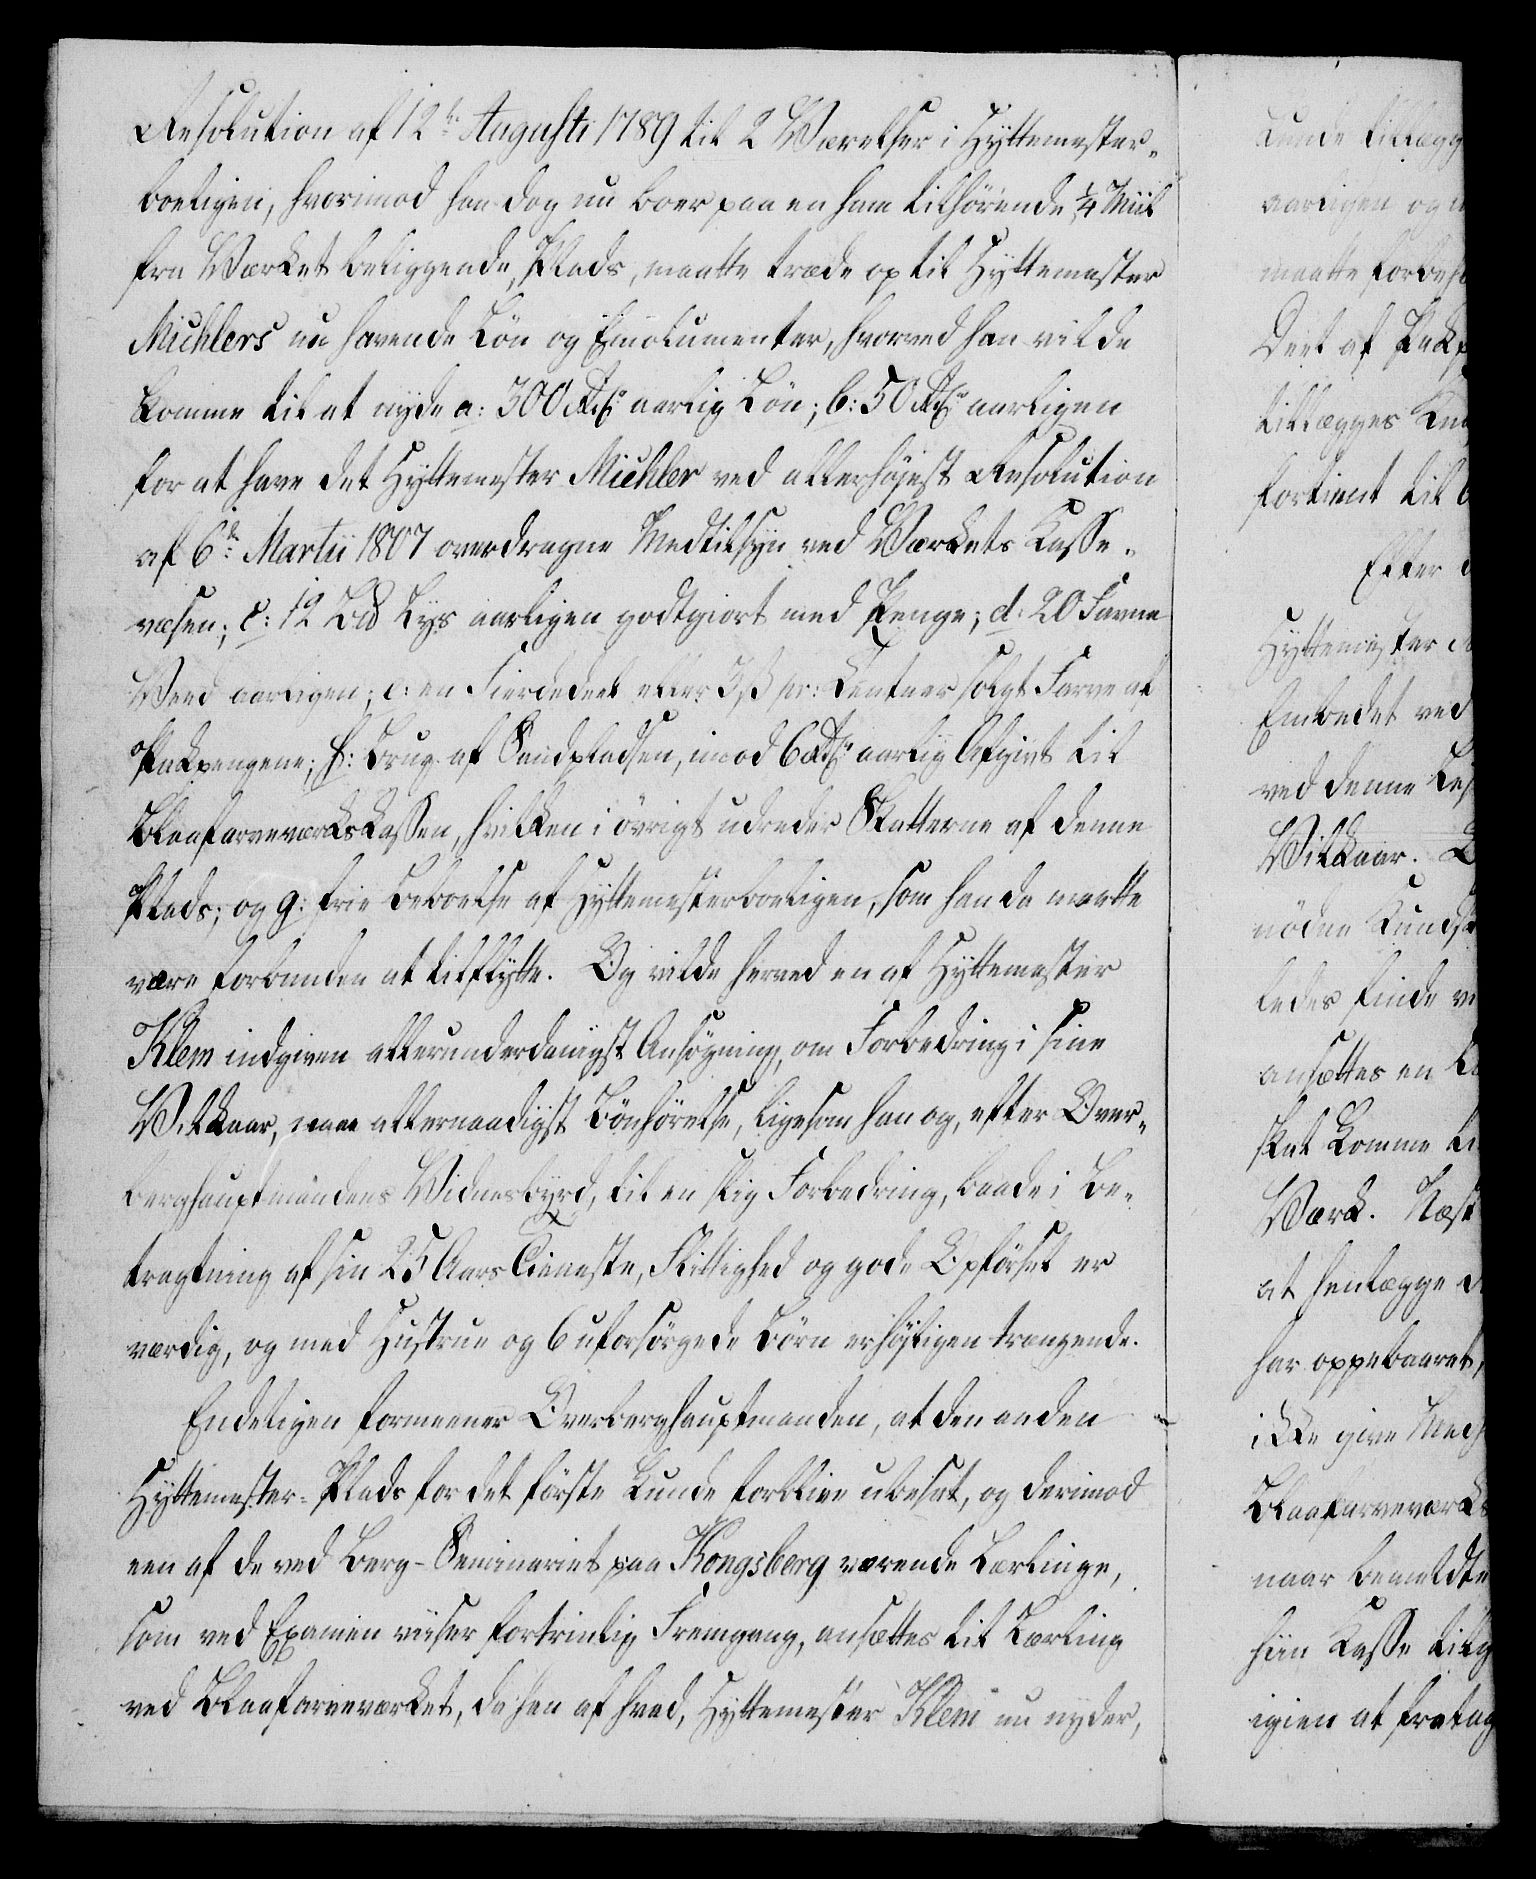 Resolution af 12te Augusti 1789 til 2 Værelser i Hyttemester-
boeligen, hvorimod han dog nu boer paa en ham tilhørende, 1/4 Miil
fra Værket beliggende, Plads, maatte træde op til Hyttemester
Michlers nu havende Løn og Emolumenter, hvorved han vilde
komme til at nyde a: 300 Rdr aarlig Løn; b: 50 Rdr aarligen
for at have det Hyttemester Michler ved allerhøjest Resolution
af 6te Martii 1807 overdragne Medtilsyn ved Værkets Kasse-
væsen; c: 12 Lb Lys aarligen godtgiort med Penge; d: 20 Favne
Veed aarligen; e: en Fierdedeel eller 3 ß pr: Centner solgt Farve af
Pakpengene; f: Brug af Sandpladsen, imod 6 Rdr aarlig Afgivt til
Blaafarveværkskassen, hvilken i øvrigt udreder Skatterne af denne
Plads; og g: frie Beboelse af Hyttemesterboeligen, som han da maatte
være forbunden at tilflytte. Og vilde herved en af Hyttemester
Klem indgiven allerunderdanigst Ansøgning, om Forbedring i sine
Vilkaar, naae allernaadigst Bønhørelse, ligesom han og, efter Over-
berghauptmandens Vidnesbyrd, til en slig Forbedring, baade i Be-
tragtning af sin 25 Aars Tieneste, Flittighed og gode Opførsel er
værdig, og med Hustrue og 6 uforsørgede Børn er højligen trængende.
Endeligen formeener Overberghauptmanden, at den anden
Hyttemester-Plads for det første kunde forblive ubesat, og derimod
een af de ved Berg-Seminariet paa Kongsberg værende Lærlinge,
som ved Examen viiser fortrinlig Fremgang, ansættes til Lærling
ved Blaafarveværket, da han af hvad, Hyttemester Klem nu nyder,
kunde tillægg
aarligen og
maatte forbeh
Deel af Pakp
tillægges
fortient til
Efter
Hyttemester
Embedet ved
ved denne
Vilkaar.
nødne Kundsk
ledes finde
ansættes en
skal komme
Værk. Næst
at henlægge
har oppebaaret,
ikke give
Blaafarveværks
naar bemeldte
hiin Kasse tilg
igien at fratag